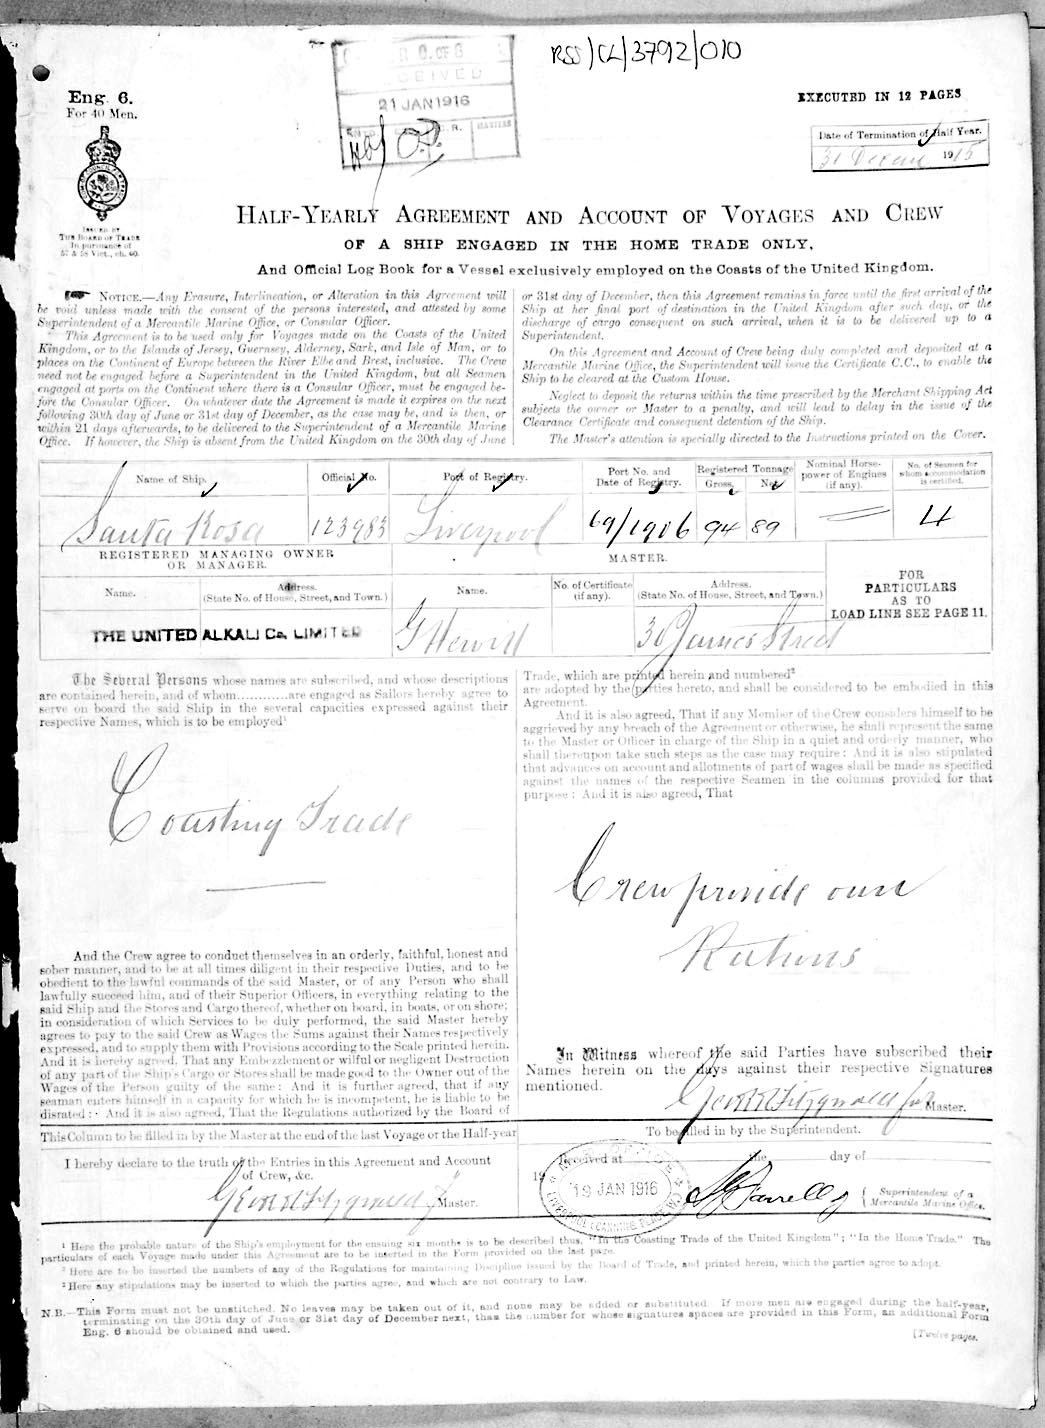 RSS/CL/3792/010
R. G. OF S
RECEIVED
21 JAN 1916
Eng. 6.
For 40 Men.
EXECUTED IN 12 PAGES
Date of Termination of Half Year.
31 Decem 1915
ISSUED BY
THE BOARD OF TRADE
In pursuance of
57 & 58 Vict., ch. 60.
HALF-YEARLY AGREEMENT AND ACCOUNT OF VOYAGES AND CREW
OF A SHIP ENGAGED IN THE HOME TRADE ONLY,
And Official Log Book for a Vessel exclusively employed on the Coasts of the United Kingdom.
NOTICE.—Any Erasure, Interlineation, or Alteration in this Agreement will
be void unless made with the consent of the persons interested, and attested by some
Superintendent of a Mercantile Marine Office, or Consular Officer.
This Agreement is to be used only for Voyages made on the Coasts of the United
Kingdom, or to the Islands of Jersey, Guernsey, Alderney, Sark, and Isle of Man, or to
places on the Continent of Europe between the River Elbe and Brest, inclusive. The Crew
need not be engaged before a Superintendent in the United Kingdom, but all Seamen
engaged at ports on the Continent where there is a Consular Officer, must be engaged be-
fore the Consular Officer. On whatever date the Agreement is made it expires on the next
following 30th day of June or 31st day of December, as the case may be, and is then, or
within 21 days afterwards, to be delivered to the Superintendent of a Mercantile Marine
Office. If however, the Ship is absent from the United Kingdom on the 30th day of June
or 31st day of December, then this Agreement remains in force until the first arrival of the
Ship at her final port of destination in the United Kingdom after such day, or the
discharge of cargo consequent on such arrival, when it is to be delivered up to a
Superintendent.
On this Agreement and Account of Crew being duly completed and deposited at a
Mercantile Marine Office, the Superintendent will issue the Certificate C.C., to enable the
Ship to be cleared at the Custom House.
Neglect to deposit the returns within the time prescribed by the Merchant Shipping Act
subjects the owner or Master to a penalty, and will lead to delay in the issue of the
Clearance Certificate and consequent detention of the Ship.
The Master's attention is specially directed to the Instructions printed on the Cover.
Name of Ship.
Official No.
Port of Registry.
Port No. and
Date of Registry.
Registered Tonnage
Gross.
Net.
Nominal Horse-
power of Engines
(if any).
No. of Seamen for
whom accommodation
is certified.
Santa Rosa
123983
Liverpool
69/1906
94
89
4
REGISTERED MANAGING OWNER
OR MANAGER.
MASTER.
FOR
PARTICULARS
AS TO
LOAD LINE SEE PAGE 11.
Name.
Address.
(State No. of House, Street, and Town.)
Name.
No. of Certificate
(if any).
Address.
(State No. of House, Street, and Town.)
THE UNITED ALKALI Co. LIMITED
G Hewitt
30 James Street
The Several Persons whose names are subscribed, and whose descriptions
are contained herein, and of whom............are engaged as Sailors hereby agree to
serve on board the said Ship in the several capacities expressed against their
respective Names, which is to be employed¹
Coasting Trade
And the Crew agree to conduct themselves in an orderly, faithful, honest and
sober manner, and to be at all times diligent in their respective Duties, and to be
obedient to the lawful commands of the said Master, or of any Person who shall
lawfully succeed him, and of their Superior Officers, in everything relating to the
said Ship and the Stores and Cargo thereof, whether on board, in boats, or on shore;
in consideration of which Services to be duly performed, the said Master hereby
agrees to pay to the said Crew as Wages the Sums against their Names respectively
expressed, and to supply them with Provisions according to the Scale printed herein.
And it is hereby agreed, That any Embezzlement or wilful or negligent Destruction
of any part of the Ship's Cargo or Stores shall be made good to the Owner out of the
Wages of the Person guilty of the same: And it is further agreed, that if any
seaman enters himself in a capacity for which he is incompetent, he is liable to be
disrated: And it is also agreed, That the Regulations authorized by the Board of
Trade, which are printed herein and numbered²
are adopted by the parties hereto, and shall be considered to be embodied in this
Agreement.
And it is also agreed, That if any Member of the Crew considers himself to be
aggrieved by any breach of the Agreement or otherwise, he shall represent the same
to the Master or Officer in charge of the Ship in a quiet and orderly manner, who
shall thereupon take such steps as the case may require: And it is also stipulated
that advances on account and allotments of part of wages shall be made as specified
against the names of the respective Seamen in the columns provided for that
purpose: And it is also agreed, That
Crew provide own
Rations
In Witness whereof the said Parties have subscribed their
Names herein on the days against their respective Signatures
mentioned.
Geo R R Fitzgerald for Master.
This Column to be filled in by the Master at the end of the last Voyage or the Half-year
I hereby declare to the truth of the Entries in this Agreement and Account
of Crew, &c.
Geo R R Fitzgerald f Master.
To be filled in by the Superintendent.
Received at the day of
19
19 JAN 1916
Superintendent of a
Mercantile Marine Office.
¹ Here the probable nature of the Ship's employment for the ensuing six months is to be described thus, "In the Coasting Trade of the United Kingdom"; "In the Home Trade." The
particulars of each Voyage made under this Agreement are to be inserted in the Form provided on the last page.
² Here are to be inserted the numbers of any of the Regulations for maintaining Discipline issued by the Board of Trade, and printed herein, which the parties agree to adopt.
³ Here any stipulations may be inserted to which the parties agree, and which are not contrary to Law.
N.B.—This Form must not be unstitched. No leaves may be taken out of it, and none may be added or substituted. If more men are engaged during the half-year,
terminating on the 30th day of June or 31st day of December next, than the number for whose signatures spaces are provided in this Form, an additional Form
Eng. 6 should be obtained and used.
[Twelve pages.